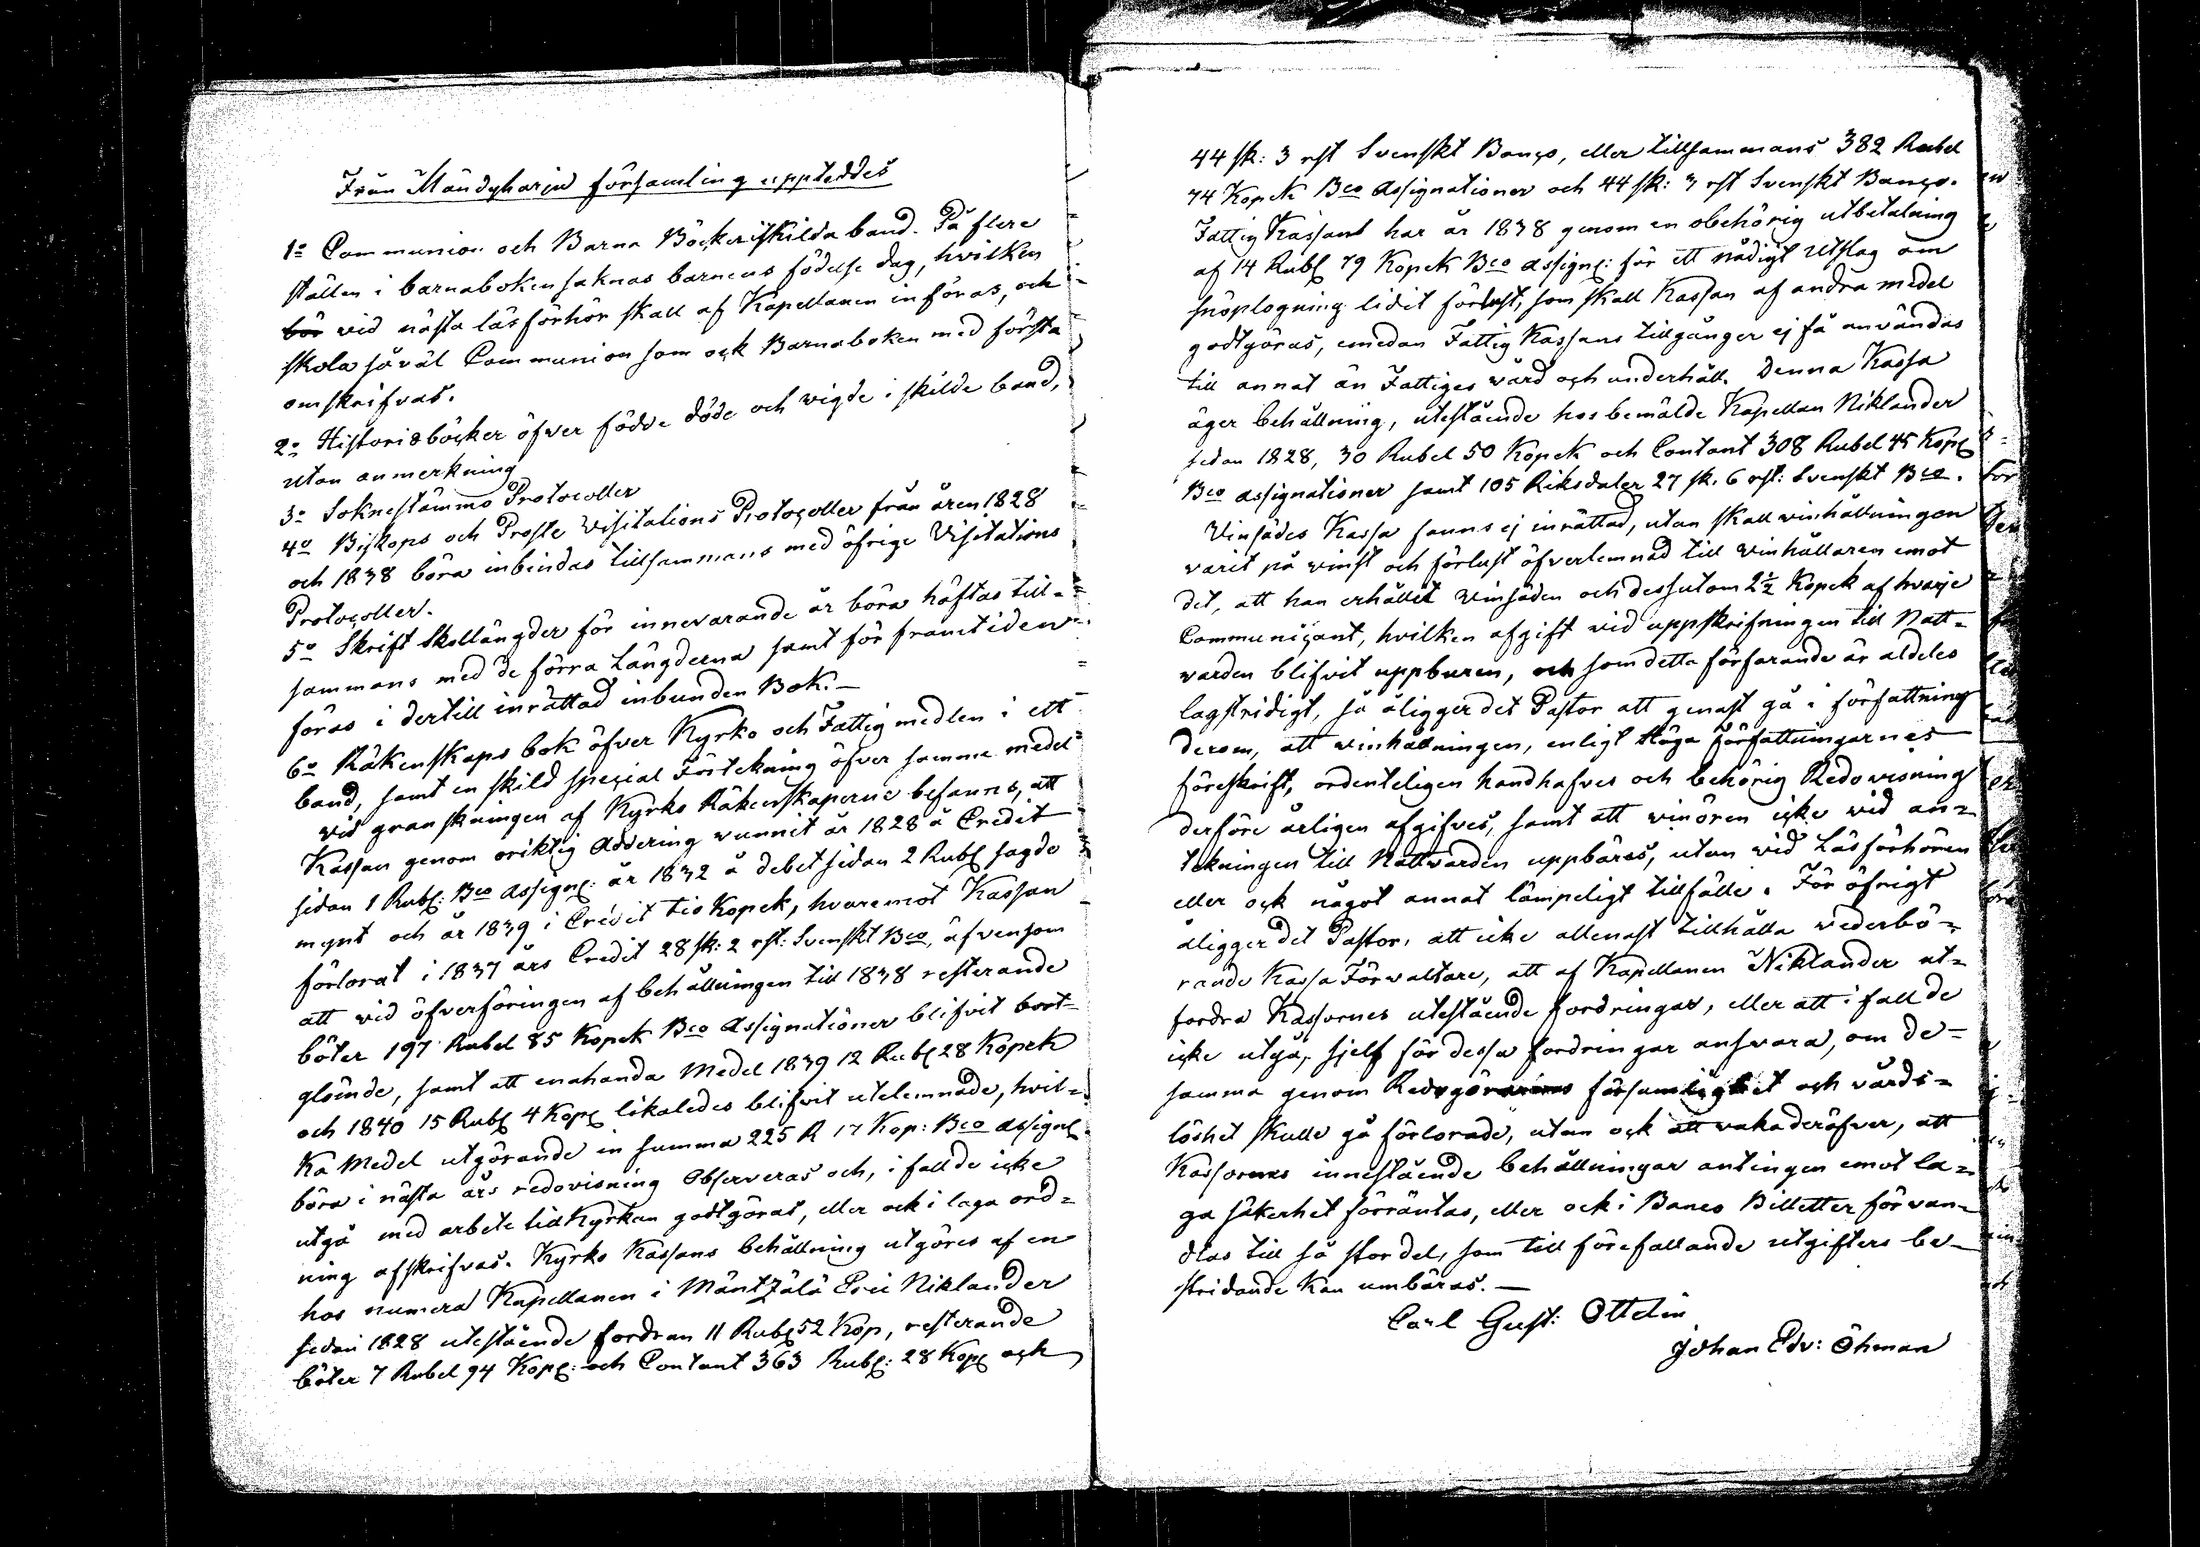 Från Mändyharju församling uppteddes
1o Communion och Barna Böcker i skilda band. På flere
ställen i barnaboken saknas barnens födelse dag, hvilken
bör vid nästa läsförhör skall af Kapellanen införas, och
skola såväl Communion som ock Barnaboken med första
omskrifvas.
2o Historiæböcker öfver födde döde och vigde i skilde band,
utan anmerkning
3o Soknestämmo Protocoller
4o Biskops och Proste Visitations Protocoller från åren 1828
och 1838 böra inbindas tillsammans med öfrige Visitations
Protocoller.
5o Skriftskollängder för innevarande år böra häftas till-
sammans med de förra Längderna samt för framtiden
föras i dertill inrättad inbunden Bok. —
6o Räkenskaps bok öfver Kyrko och Fattigmedlen i ett
band, samt en skild special Förtekning öfver samma medel
vid granskningen af Kyrko Räkenskaperne befanns, att
Kassan genom oriktig Addering vunnit år 1828 å Credit
sidan 1 Rubl: Bco Assign: år 1832 å debet sidan 2 Rubl sagde
mynt och år 1839 i Credit tio Kopek, hvaremot Kassan
förlorat i 1837 års Credit 28 sk: 2 rst: Svenskt Bco, äfvensom
att vid öfverföringen af behållningen till 1838 resterande
böter 197 Rubel 85 Kopek Bco Assignationer blifvit bort-
glömde, samt att enahanda Medel 1839 12 Rubl 28 Kopek
och 1840 15 Rubl 4 Kop: likaledes blifvit utelemnade, hvil-
ka Medel utgörande in summa 225 R 17 Kop: Bco Assign:
böra i nästa års redovisning Observeras och, i fall de icke
utgå med arbete tid Kyrkan godtgöras, eller ock i laga ord-
ning afskrifvas. Kyrko Kassans behållning utgöres af en
hos numera Kapellanen i Mäntzälä Eric Niklander
sedan 1828 utestående fordran 11 Rubl 52 Kop, resterande
böter 7 Rubel 94 Kop: och Contant 363 Rubl: 28 Kop: och
44 sk: 3 rst Svenskt Banco, eller tillsammans 382 Rubel
74 Kopek Bco Assignationer och 44 sk: 3 rst Svenskt Banco.
Fattig Kassans har år 1838 genom en obehörig utbetalning
af 14 Rubl 79 Kopek Bco Assign: för ett nådigt Utslag om
snöplogning lidit förlust, som skall Kassan af andra medel
godtgöras, emedan Fattig Kassans tillgånger ej få användas
till annat än Fattiges vård och underhåll. Denna Kassa
äger behållning, utestående hos bemälde Kapellan Niklander
sedan 1828, 30 Rubel 50 Kopek och Contant 308 Rubel 45 Kop:
Bco Assignationer samt 105 Riksdaler 27 sk. 6 rst: Svenskt Bco.
Vinsädes Kassa fanns ej inrättad, utan skall vinhållningen
varit på vinst och förlust öfverlemnad till vinhållaren emot
det, att han erhållit Vinsäden och dessutom 2½ Kopek af hvarje
Communicant, hvilken afgift vid uppskrifningen till Natt-
varden blifvit uppburen, och som detta förfarande är aldeles
lagstridigt, så åligger det Pastor att genast gå i författning
derom, att vinhållningen, enligt Höga Författningarnes
föreskrift, ordenteligen handhafves och behörig Redovisning
derföre årligen afgifves, samt att vinören icke vid an-
tekningen till Nattvarden uppbäres, utan vid Läsförhören
eller ock något annat lämpeligt tillfälle. För öfrigt
åligger det Pastor, att icke allenast tillhålla vederbö-
rande Kassa Förvaltare, att af Kapellanen Niklander ut-
fordra Kassornes utestående fordringar, eller att i fall de
icke utgå, sjelf för dessa fordringar ansvara, om de-
samma genom försumlighet och vårds-
löshet skulle gå förlorade, utan ock att vaka deröfver, att
Kassornes innestående behållningar antingen emot la-
ga säkerhet förräntas, eller ock i Banco Billetter förvan-
dlas till så stor del, som till förefallande utgifters be-
stridande kan umbäras. —
Carl Gust: Ottelin
Johan Edv: Öhman